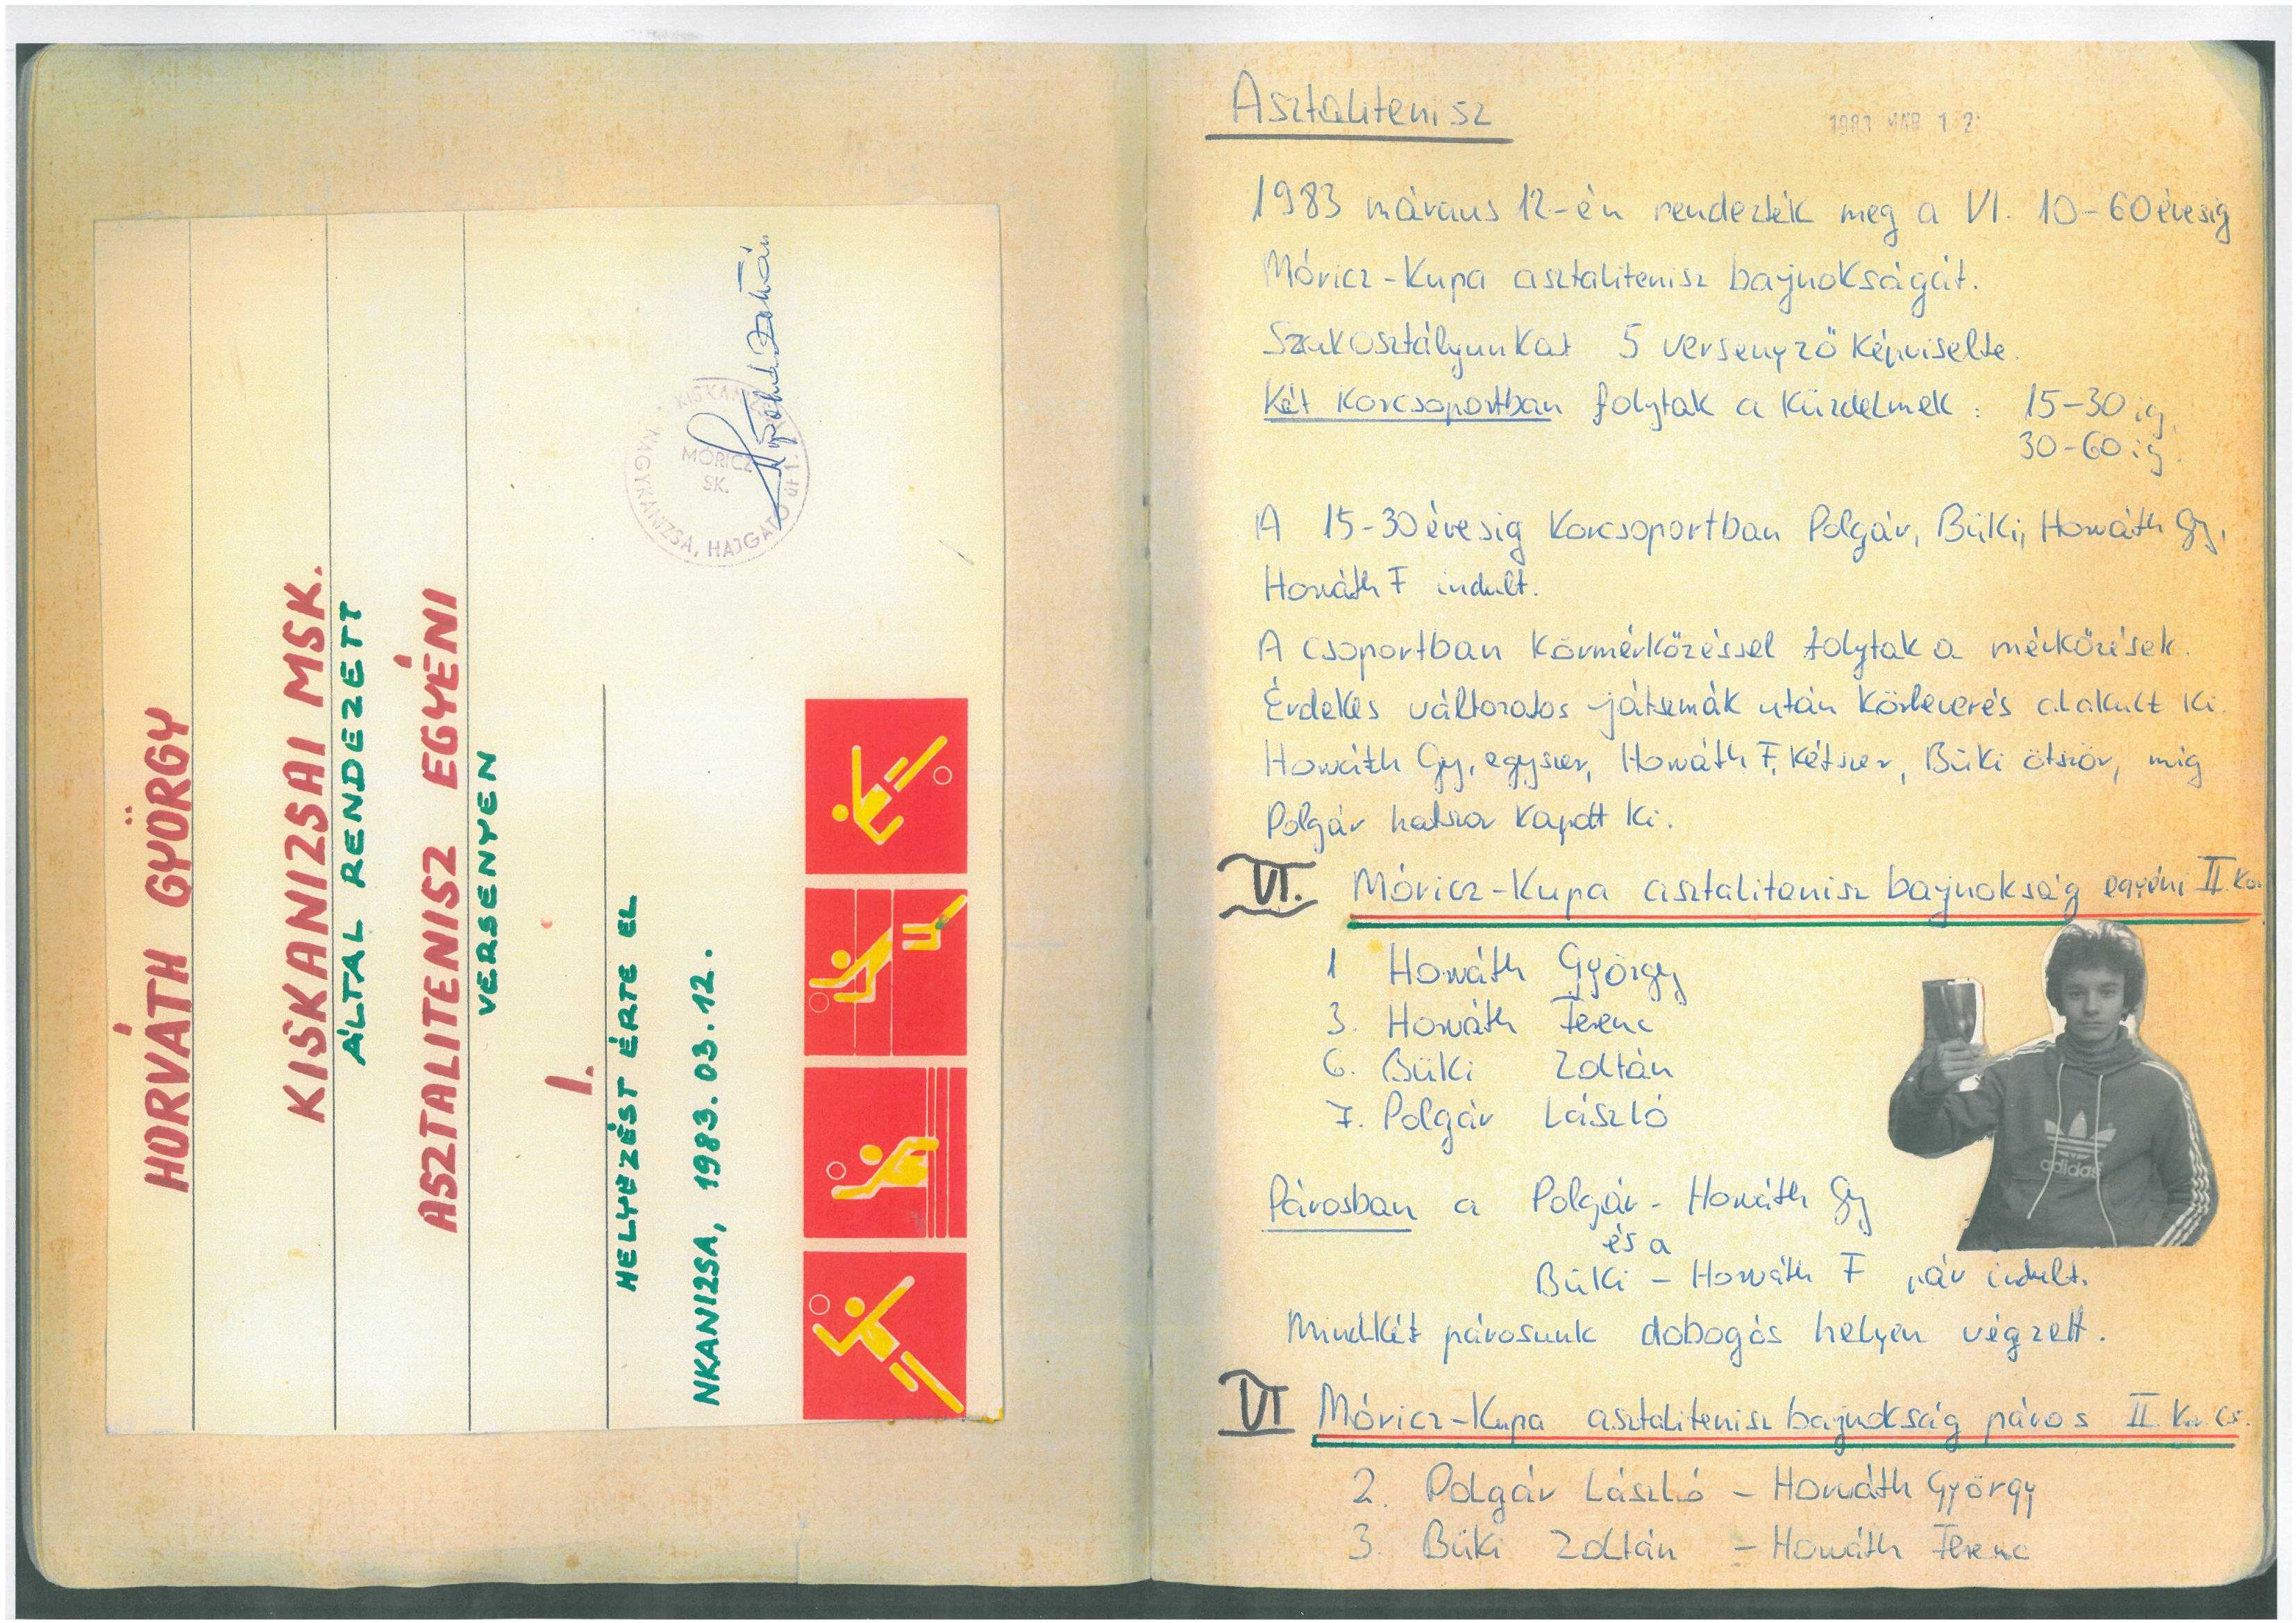 HORVÁTH GYÖRGY
KISKANIZSAI MSK.
ÁLTAL RENDEZETT
ASZTALITENISZ EGYÉNI
VERSENYEN
I.
HELYEZÉST ÉRTE EL
NKANIZSA, 1983.03.12.
MÓRICZ
SK.
NAGYKANIZSA, HAJGATÓ út 1.
Asztalitenisz
1983 MÁR 12
1983 március 12-én rendezték meg a VI. 10-60 évesig
Móricz-Kupa asztalitenisz bajnokságát.
Szakosztályunkat 5 versenyző képviselte.
Két korcsoportban folytak a küzdelmek: 15-30 ig,
30-60 ig.
A 15-30 évesig korcsoportban Polgár, Büki, Horváth Gy,
Horváth F indult.
A csoportban körmérkőzéssel folytak a mérkőzések.
Érdekes változatos játszmák után körbeverés alakult ki.
Horváth Gy, egyszer, Horváth F, kétszer, Büki ötször, míg
Polgár hatszor kapott ki.
VI. Móricz-Kupa asztalitenisz bajnokság egyéni II. Kor
1 Horváth György
3. Horváth Ferenc
6. Büki Zoltán
7. Polgár László
adidas
Párosban a Polgár - Horváth Gy
és a
Büki - Horváth F pár indult.
Mindkét párosunk dobogós helyen végzett.
VI Móricz-Kupa asztalitenisz bajnokság páros II. Kor. cs.
2. Polgár László - Horváth György
3. Büki Zoltán - Horváth Ferenc